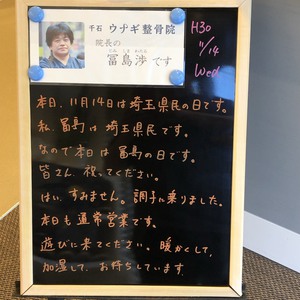 千石 ウナギ整骨院
院長の
とみ しま わたる
冨島渉です
H30
11/14
Wed
本日、11月14日は埼玉県民の日です。
私、冨島は埼玉県民です。
なので本日は冨島の日です。
皆さん、祝ってください。
はい、すみません。調子に乗りました。
本日も通常営業です。
遊びに来てください。暖かくして、
加湿して、お待ちしています